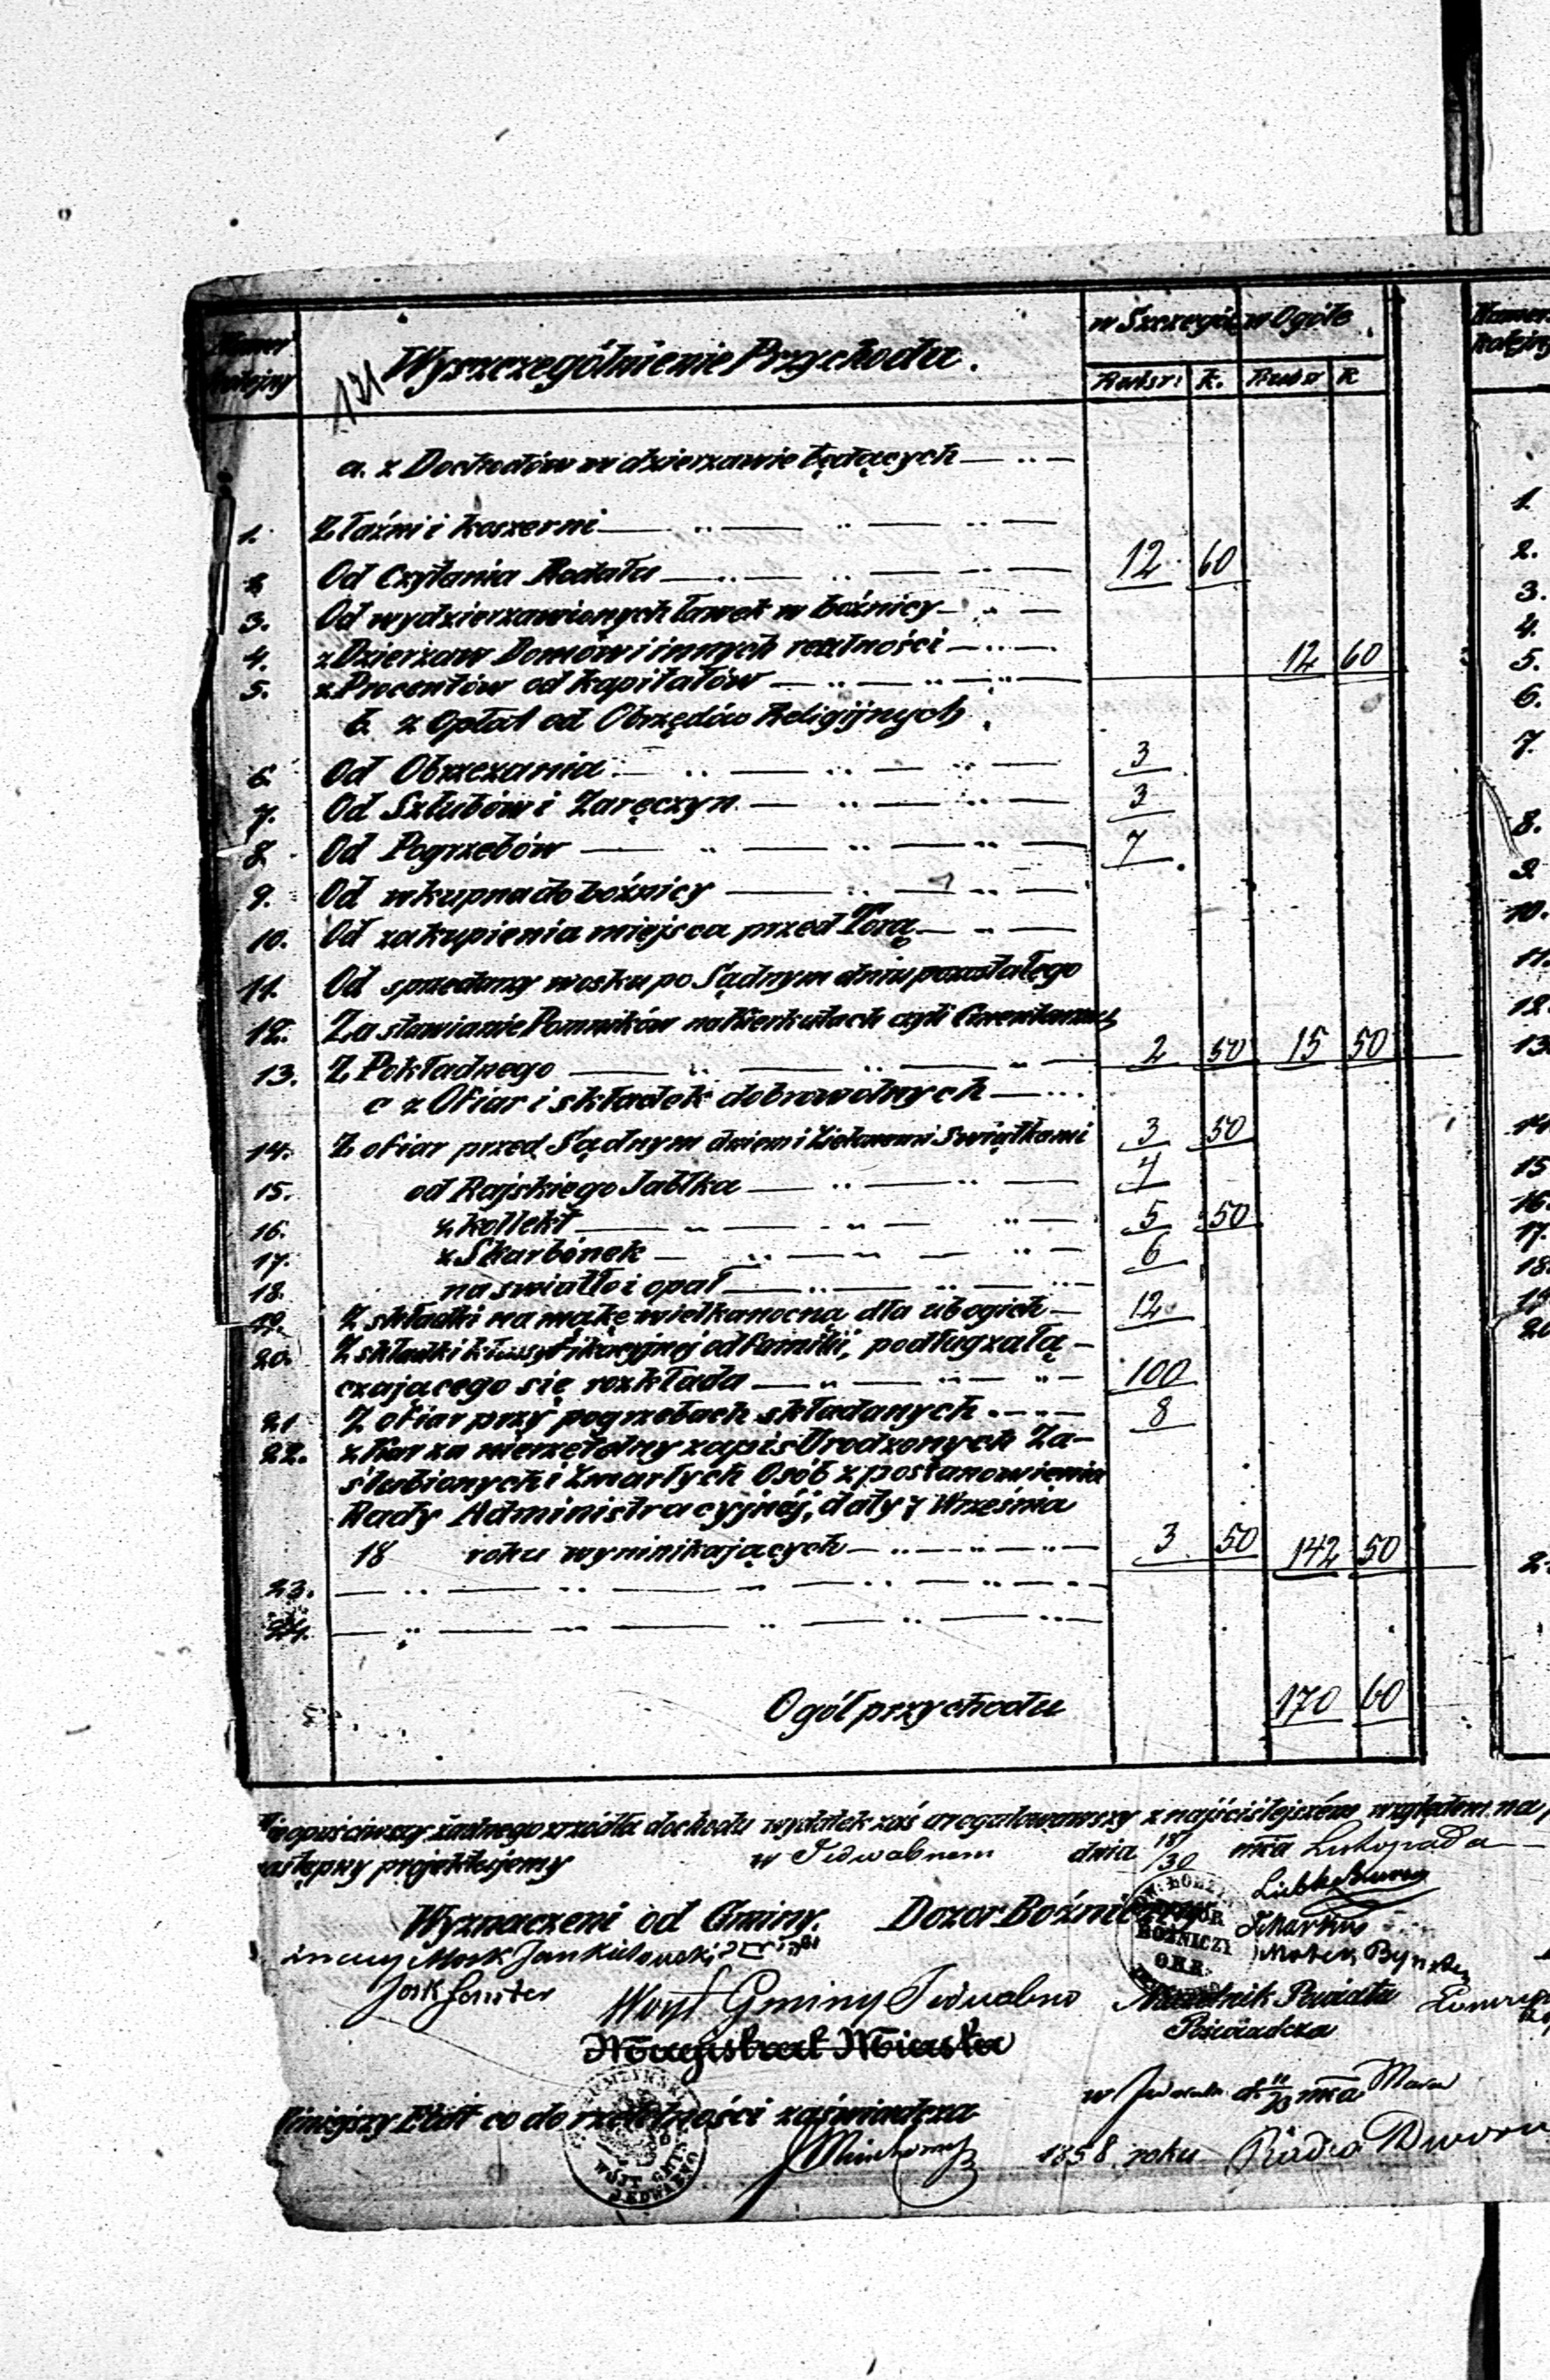 Numer kolejny Wyszczególnienie Przychodu. w Szczególe w Ogóle
131
Rubsr: k. Rubsr k
a. z Dochodów w dzierzawie będących
1. Z łaźni i koszerni
2 Od Czytania Rodału 12 60
3. Od wydzierzawionych ławek w bóźnicy
4. z Dzierzaw Domów i innych realności
5. z Procentów od kapitałów 12 60
b. z Opłat od Obrzędów Religijnych
6 Od Obrzezania 3
7. Od Szlubów i Zaręczyn 3
8. Od Pogrzebów 7
9. Od wkupna do bóźnicy
10. Od zakupienia miejsca przed Torą
11. Od sprzedarzy wosku po Sądnym dniu pozostałego
12. Za stawianie Pomników na Kierkutach czyli Cmentarzu
13. Z Pokładnego 2 50 15 50
c z Ofiar i składek dobrowolnych
14. Z ofiar przed Sądnym dniem i Zielonemi Swiątkami 3 50
15. od Rajskiego Jabłka 4
16. z kollekt 5 50
17. z Skarbónek 6
18. na swiatło i opał
19. Z składki na mąkę wielkanocną dla ubogich 12
20. Z składki klassyfikacyjnej od familii, podług załą-
czającego się rozkładu 100
21 Z ofiar przy pogrzebach składanych 8
22. z Kar za nierzetelny zapis Urodzonych Za-
ślubionych i Zmarłych Osób z postanowienia
Rady Administracyjnéj, daty 7 Września
18 roku wynnikających 3 50 142 50
23.
24.
Ogół przychodu 170 60
Numer kolejny
1.
2.
3.
4.
5.
6.
7.
8.
9
10.
11.
12.
13
14
15
16.
17.
18.
20
Nieopuściwszy żadnego zrzódła dochodu wydatek zaś uregulowawszy z najściślejszém względem na
następny projektujemy w Jedwabnem dnia 18/30 mca Listopada
Wyznaczeni od Gminy. Dozor Bóźniczy
BOZNICZY
OKR.
Mosk Jankielowski
Josk
Woyt Gminy Jedwabno
Naczelnik Powiatu
Magistrat Miasta
Poświadcza
Niniejszy Etat co do rzetelności zaświadcza
WÓJT GMINY
JEDWABNO
w dnia mca Maia
1858 roku Radca Dworu